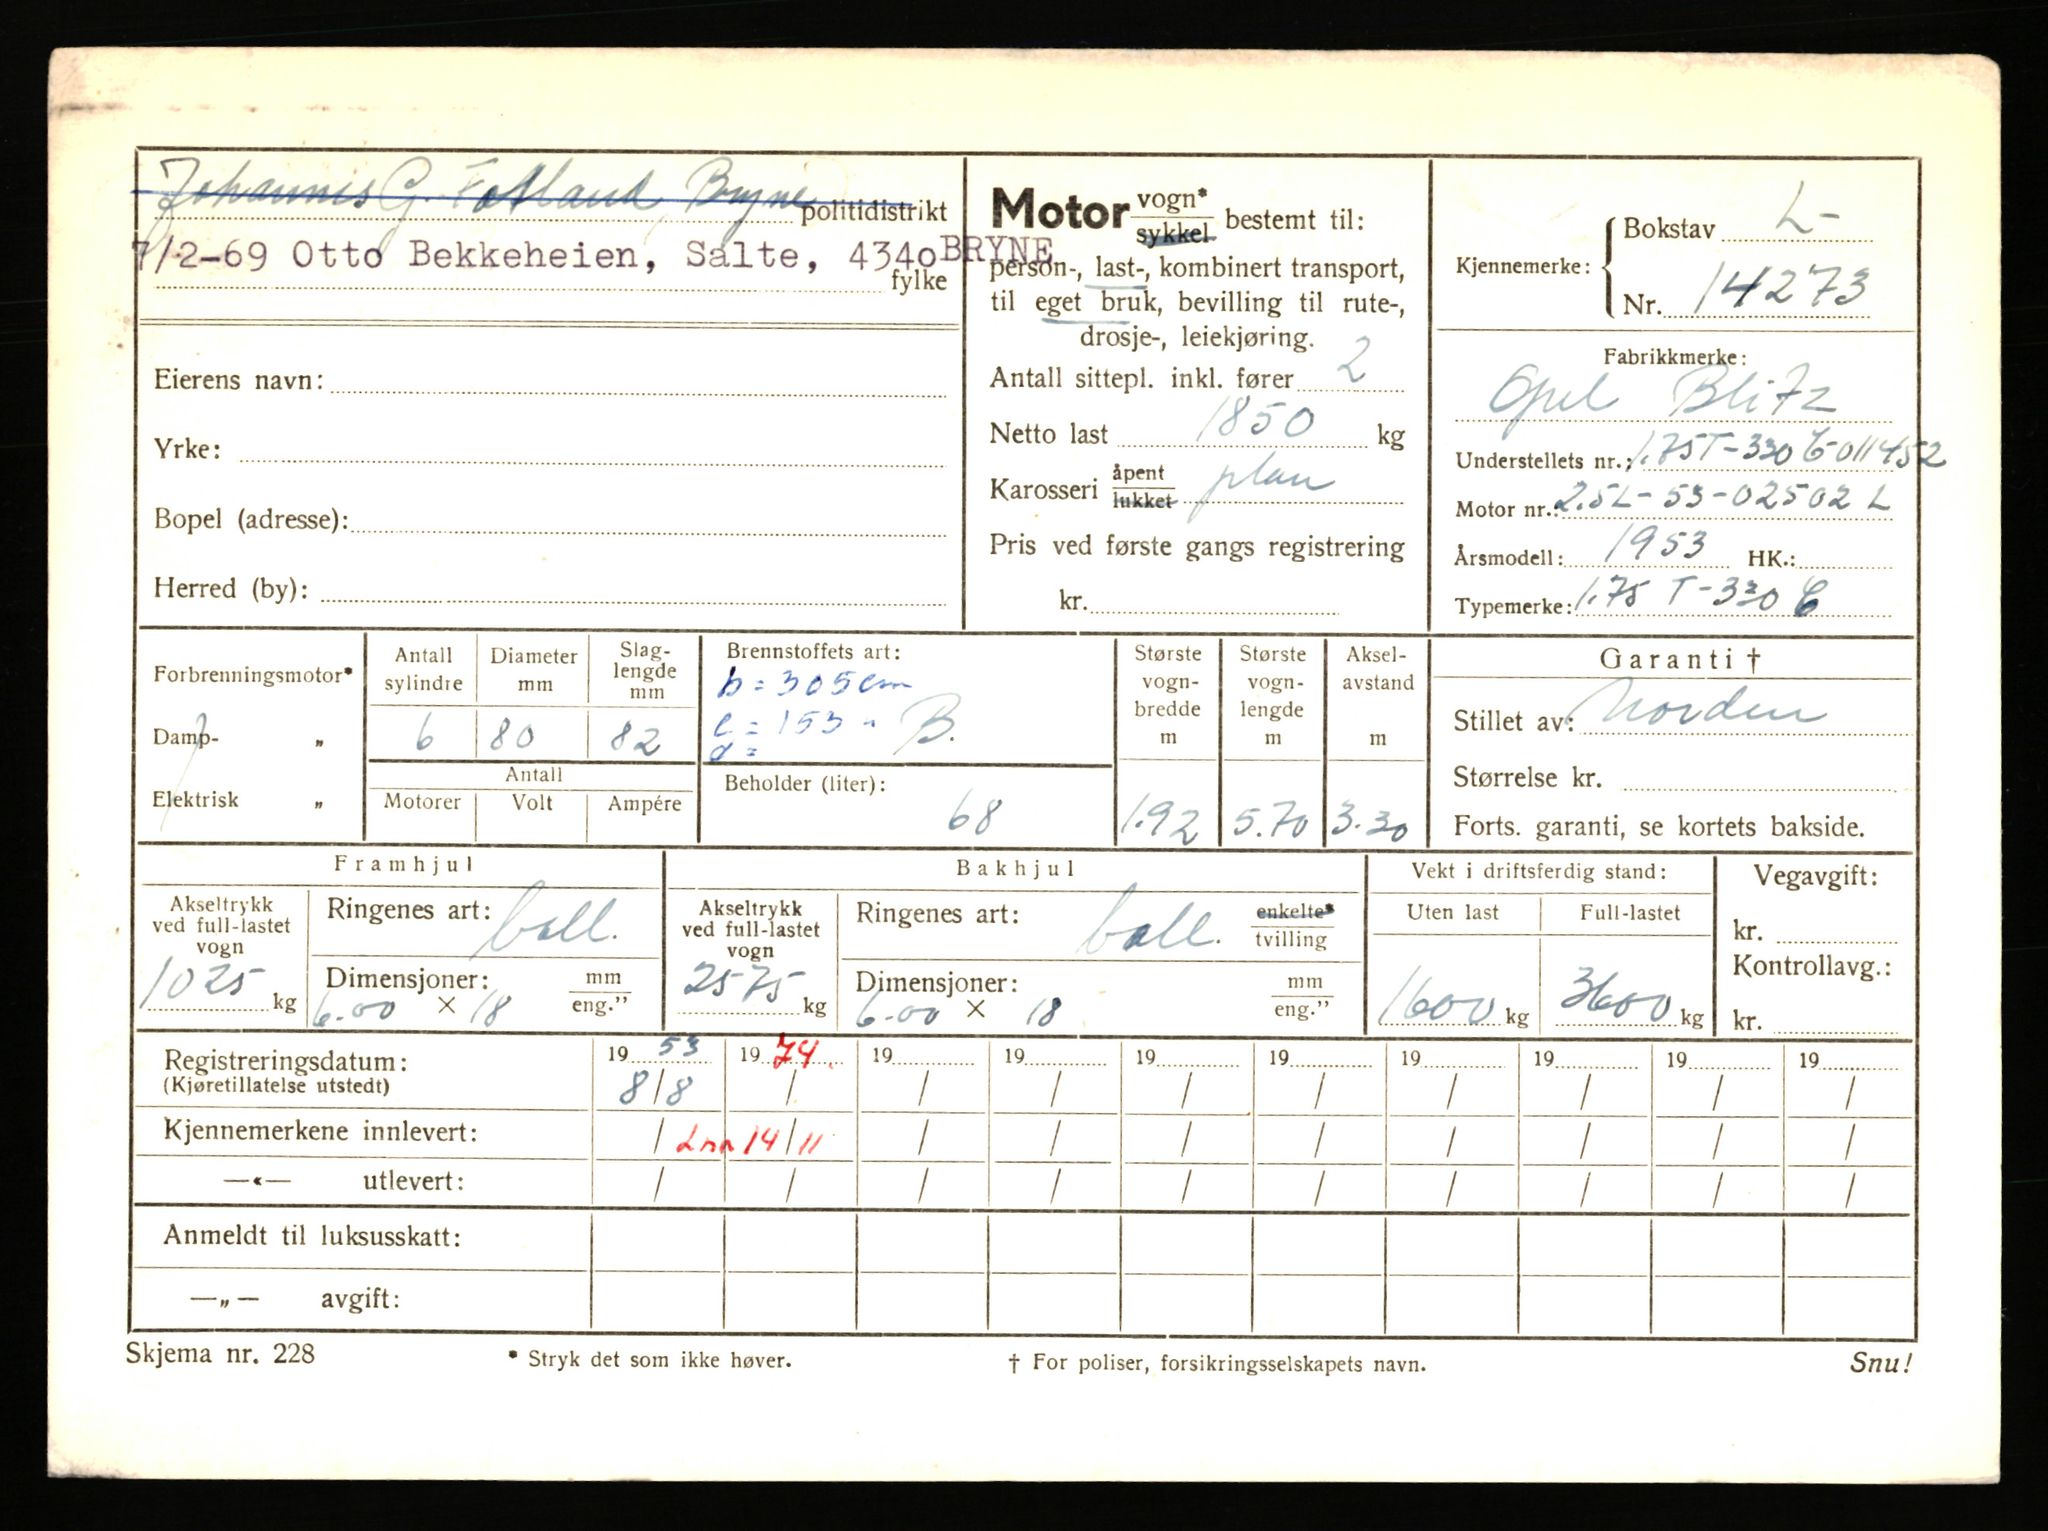 Johannes G. Fotland, Bryne politidistrikt
7/2-69 Otto Bekkeheien, Salte, 4340 BRYNE
fylke
Eierens navn:
Yrke:
Bopel (adresse):
Herred (by):
Motor vogn* sykkel bestemt til:
person-, last-, kombinert transport,
til eget bruk, bevilling til rute-,
drosje-, leiekjøring.
Antall sittepl. inkl. fører 2
Netto last 1850 kg
Karosseri åpent lukket plan
Pris ved første gangs registrering
kr.
Kjennemerke: Bokstav L-
Nr. 14273
Fabrikkmerke:
Opel Blitz
Understellets nr.: 1.75T-330 C-011452
Motor nr.: 2.5L-53-02502 L
Årsmodell: 1953 HK.:
Typemerke: 1.75 T-330 C
Forbrenningsmotor*
Damp- „
Elektrisk „
Antall sylindre Diameter mm Slaglengde mm
6 80 82
Antall
Motorer Volt Ampére
Brennstoffets art:
b = 305 cm
c = 153 " B.
d =
Beholder (liter):
68
Største vognbredde m 1.92
Største vognlengde m 5.70
Akselavstand m 3.30
Garanti †
Stillet av: Norden
Størrelse kr.
Forts. garanti, se kortets bakside.
Framhjul
Akseltrykk ved full-lastet vogn
1025 kg
Ringenes art: ball.
Dimensjoner: mm eng."
6.00 × 18
Bakhjul
Akseltrykk ved full-lastet vogn
2575 kg
Ringenes art: ball. enkelte* tvilling
Dimensjoner: mm eng."
6.00 × 18
Vekt i driftsferdig stand:
Uten last Full-lastet
1600 kg 3600 kg
Vegavgift:
kr.
Kontrollavg.:
kr.
Registreringsdatum: 19 53 19 74. 19 19 19 19 19 19 19 19
(Kjøretillatelse utstedt) 8/8 / / / / / / / / /
Kjennemerkene innlevert: / Lnn 14/11 / / / / / / / /
—«— utlevert: / / / / / / / / / /
Anmeldt til luksusskatt:
—„— avgift:
Skjema nr. 228 * Stryk det som ikke høver. † For poliser, forsikringsselskapets navn. Snu!